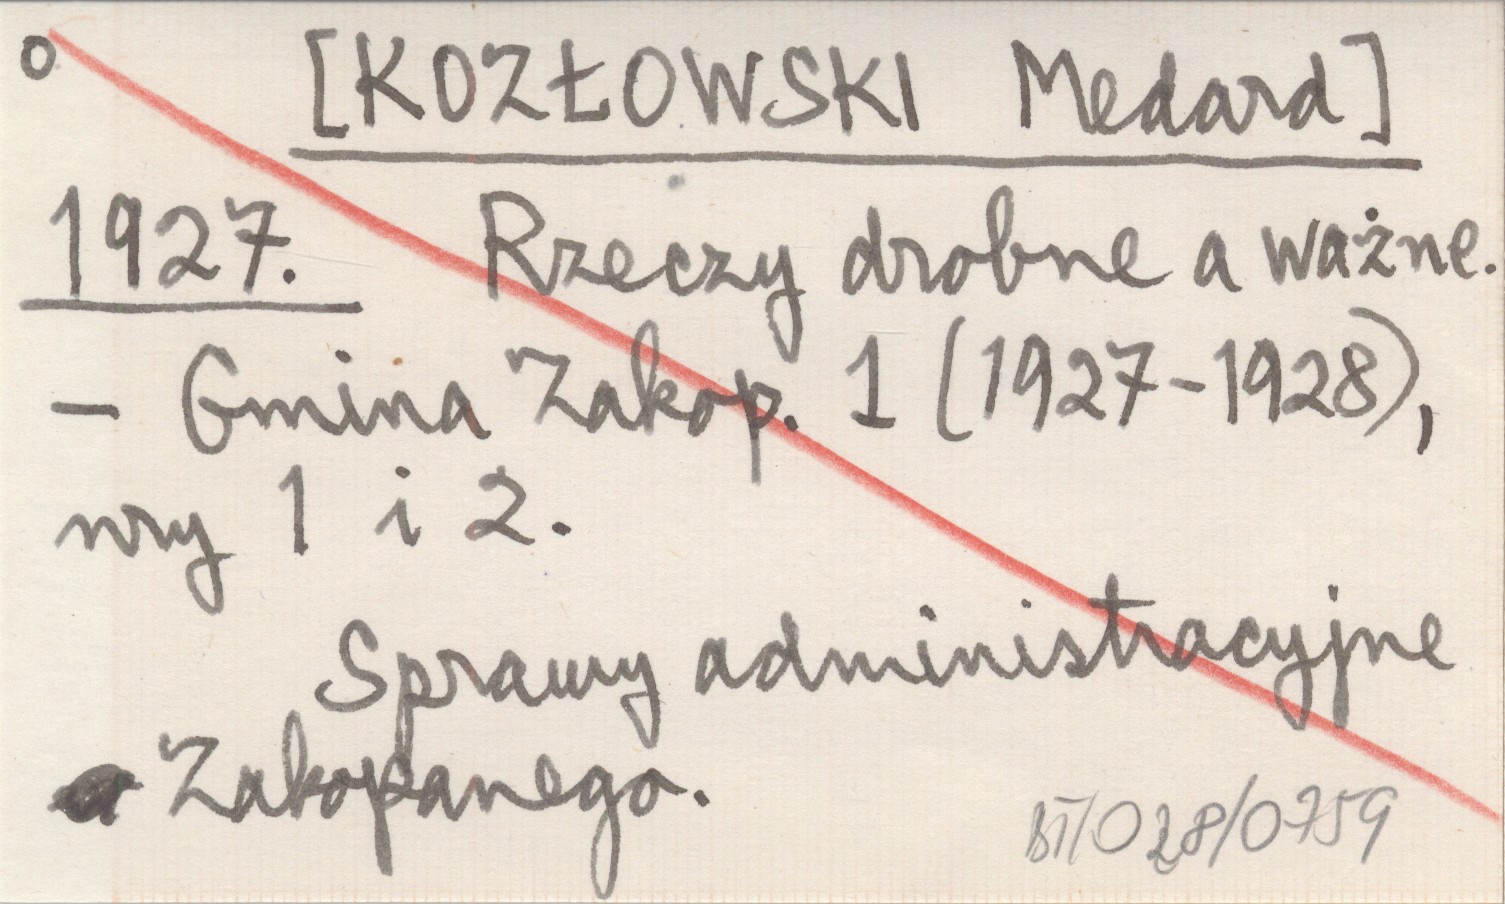 o [KOZŁOWSKI Medard]
1927. Rzeczy drobne a ważne.
– Gmina Zakop. 1 (1927-1928),
nry 1 i 2.
Sprawy administracyjne
Zakopanego.
BT/028/0759